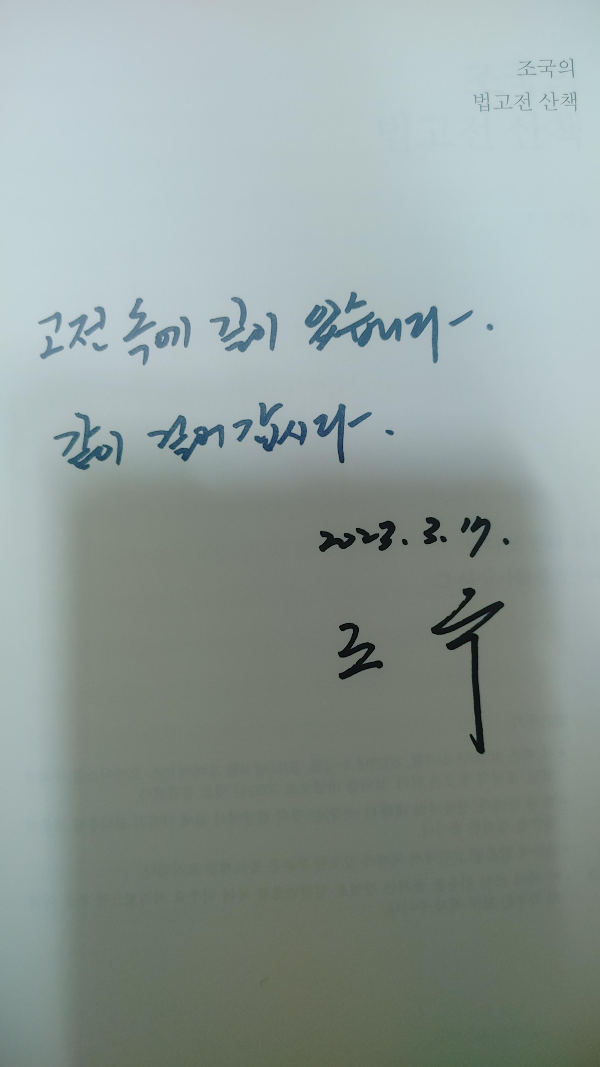 조국의
법고전 산책
고전 속에 길이 있습니다.
같이 걸어갑시다.
2023. 3. 17.
조국